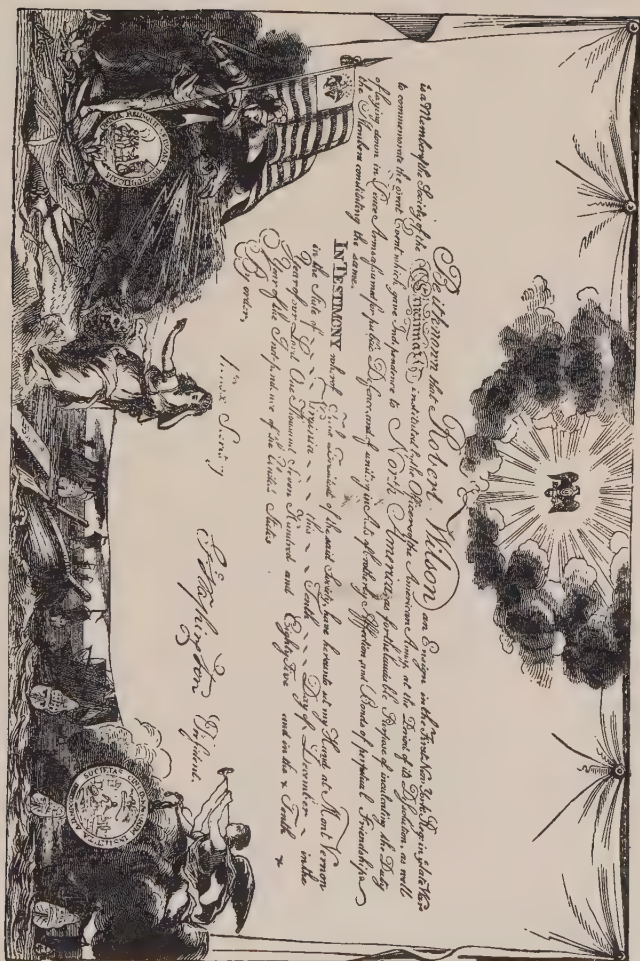 Be it known that Robert Wilson an Ensign in the First New York Reg. in late War
is a Member of the Society of the Cincinnati instituted by the Officers of the American Army, at the Period of its Dissolution, as well
to commemorate the great Event which gave Independence to North America, as for the laudable Purpose of inculcating the Duty
of laying down in Peace Arms assumed for public Defence, and of uniting in Acts of brotherly Affection, and Bonds of perpetual Friendship
the Members constituting the same.
IN TESTIMONY whereof I, the President of the said Society, have hereunto set my Hand at Mont Vernon
in the State of Virginia this Tenth Day of December in the
Year of our Lord One Thousand Seven Hundred and Eighty Five and in the Tenth
Year of the Independence of the United States.
By order,
G. Washington President.
Secretary
SOCIETAS